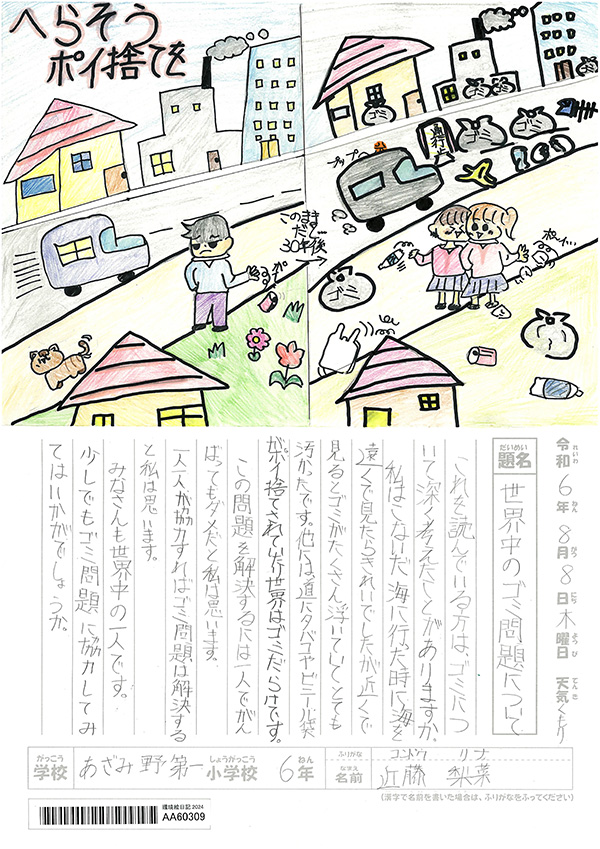 へらそう
ポイ捨てを
ゴミ
ゴミ
ゴミ
ゴミ
通行止
プップー
このまま
だと…
30年後
ポイ…
ゴミ
令和6年8月8日木曜日 天気くもり
れいわ ねん がつ にち ようび てんき
だいめい
題名
世界中のゴミ問題について
これを読んでいる方は、ゴミにつ
いて深く考えたことがありますか。
私はこないだ海に行った時に海を
遠くで見たらきれいでしたが近くで
見るとゴミがたくさん浮いていてとても
汚かったです。他には、道にタバコやビニール袋
がポイ捨てされていたり世界はゴミだらけです。
この問題を解決するには一人でがん
ばってもダメだと私は思います。
一人一人が協力すればゴミ問題は解決する
と私は思います。
みなさんも世界中の一人です。
少しでもゴミ問題に協力してみ
てはいかがでしょうか。
がっこう
学校
あざみ野第一
しょうがっこう
小学校
6
ねん
年
ふりがな
コンドウ リナ
なまえ
名前
近藤 梨菜
(漢字で名前を書いた場合は、ふりがなをふってください)
環境絵日記2024
AA60309